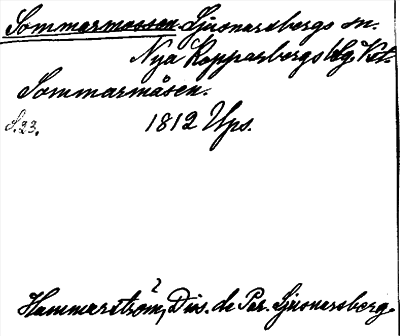 Sommarmossen Ljusnarsbergs sn.
Nya Kopparbergs blg. Vst.
Sommarmåsen.
S.23. 1812 Ups.
Hammarström, Dis. de Par. Ljusnarsberg.